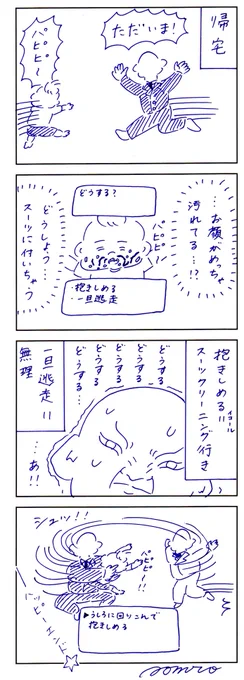 帰宅
ただいま!
パピピ〜
…お顔がめっちゃ
汚れてる…!?
どうする?
パピピー
抱きしめる
一旦逃走
どうしよう…
スーツに付いちゃう
抱きしめる=
イコール
スーツクリーニング行き
どうする
どうする
どうする
どうする
どうする
一旦逃走=
無理
…あ!!
シュッ!!
パピピー!!
▶うしろに回りこんで
抱きしめる
ハッピーエンド☆